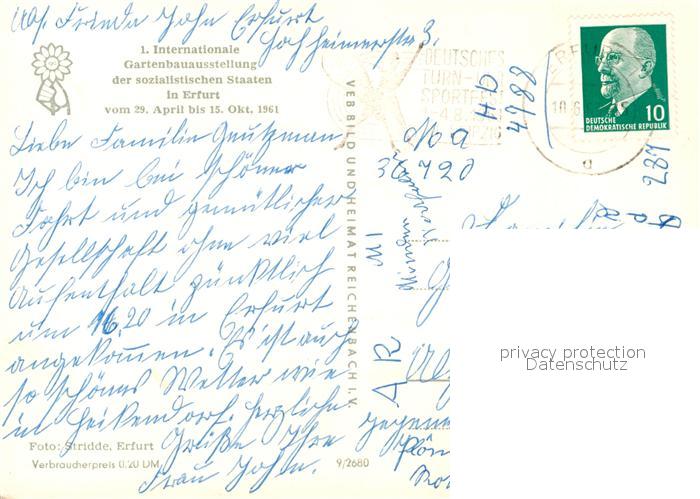 Abs. Frieda John Erfurt
Hochheimerstr 3.
1. Internationale
Gartenbauausstellung
der sozialistischen Staaten
in Erfurt
vom 29. April bis 15. Okt. 1961
Liebe Familie
Ich bin bei schöner
Fahrt und gemütlicher
Gesellschaft ohne viel
Aufenthalt pünktlich
um 16.20 in Erfurt
angekommen. Es ist auch
so schönes Wetter wie
in Heikendorf. Herzliche
Grüße Ihre
Frau John.
Foto: Stridde, Erfurt
Verbraucherpreis 0,20 DM
9/2680
VEB BILD UND HEIMAT REICHENBACH I. V.
DEUTSCHES
TURN-
SPORTFEST
10
DEUTSCHE
DEMOKRATISCHE REPUBLIK
HD
4988
Ma
36720
287
Familie
M1
AR
gegenü
privacy protection
Datenschutz